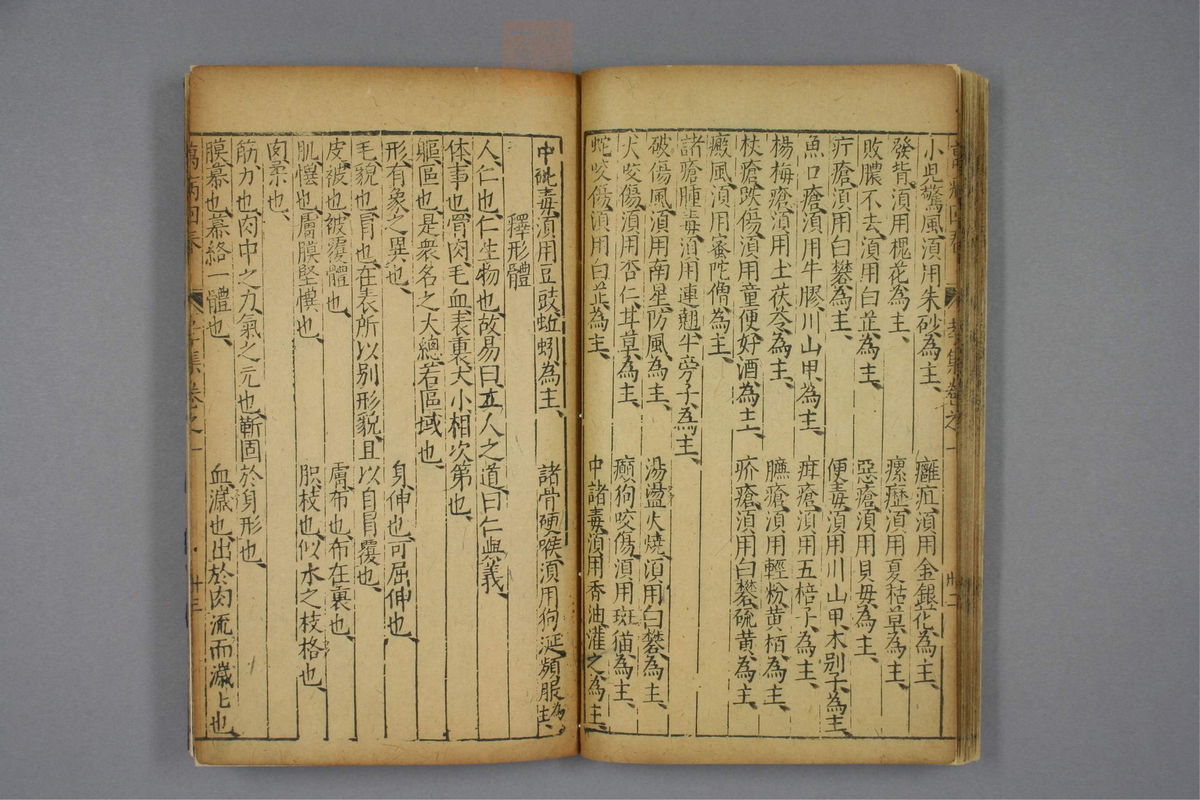 小兒驚風須用朱砂為主、　癰疽須用金銀花為主、
發背須用槐花為主、　瘰癧須用夏枯草為主、
敗膿不去須用白芷為主、　惡瘡須用貝母為主、
疔瘡須用白礬為主、　便毒須用川山甲木別子為主、
魚口瘡須用牛膠川山甲為主、　疳瘡須用五棓子為主、
楊梅瘡須用土茯苓為主、　臁瘡須用輕粉黃栢為主、
杖瘡跌傷須用童便好酒為主、　疥瘡須用白礬硫黃為主、
癜風須用蜜陀僧為主、
諸瘡腫毒須用連翹牛旁子為主、
破傷風須用南星防風為主、　湯盪火燒須用白礬為主、
犬咬傷須用杏仁甘草為主、　癲狗咬傷須用斑猫為主、
蛇咬傷須用白芷為主、　中諸毒須用香油灌之為主、
中砒毒須用豆豉蚯蚓為主、　諸骨硬喉須用狗涎頻服為主、
釋形體
人仁也仁生物也故易曰立人之道曰仁與義、
体事也骨肉毛血表裏大小相次第也、
軀區也是衆名之大總若區域也、
形有象之異也、　身伸也可屈伸也、
毛貌也冒也在表所以别形貌且以自冒覆也、
皮被也被覆體也、　膚布也布在裏也、
肌懷也膚膜堅懷也、　胑枝也似木之枝格也、
肉柔也、
筋力也肉中之力氣之元也靳固於身形也、
膜幕也幕絡一體也、　血濊也出於肉流而濊濊也、